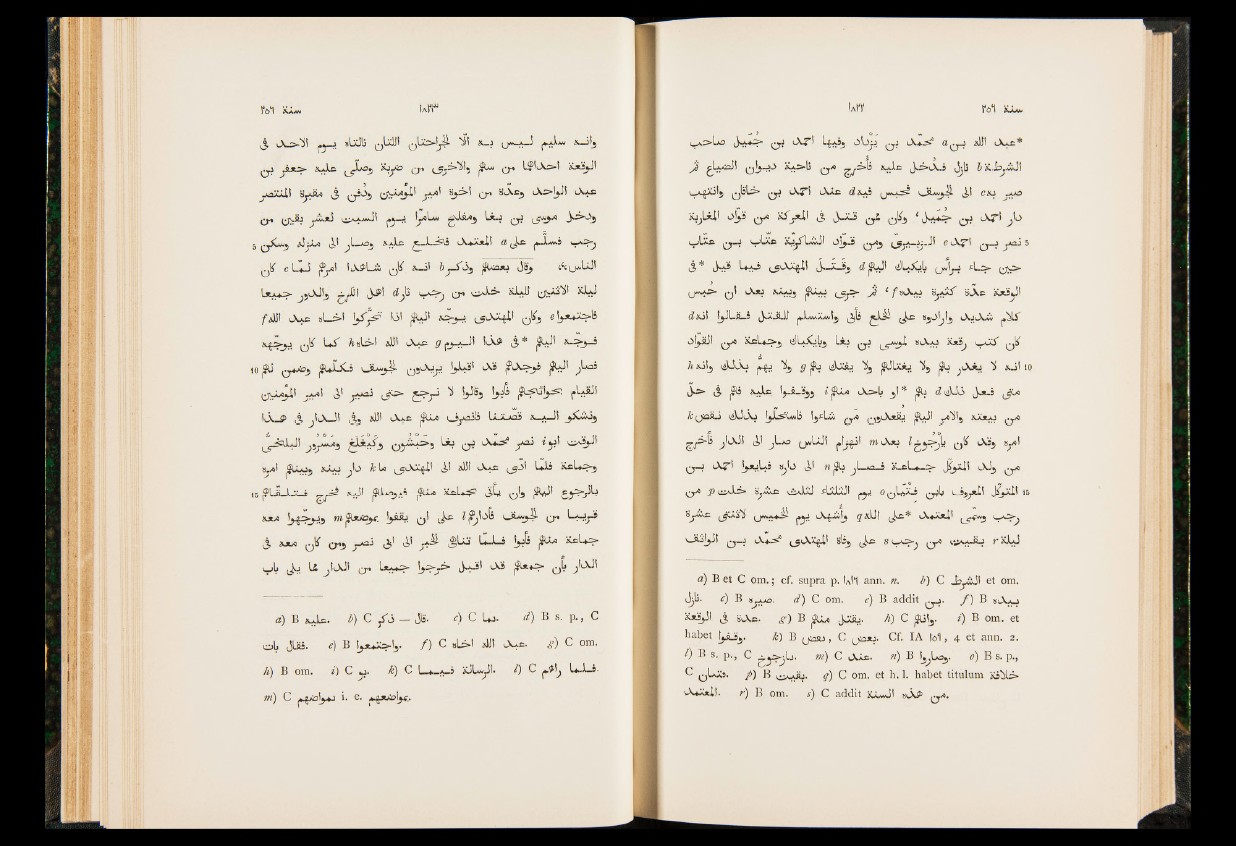 ١٨٢٢ سنة ٢٥٦
*عبد الله a بن محمّد بن يَزْداد وفيها احمد بن جُمَيل صاحب
الشرطة b نازل فدخل عليه فأخرج من ناحية ديوان الضياع ثم
صير به c الى الجوسف فحبس فيه d عند احمد بن خاقان وانتهب
دار احمد بن جُمَيل، وكان ممّن قتل في المعركة من قوّاد المغاربة
5 نصر بن احمد e الزبيرى ومن قوّاد الشاكريّة عتّاب بن عتّاب
حين جاء برأس بايكباك اليهم d وقتل المهتدى فيما قيل *في
الوقعة عدّة كثيرة بيده f، ثم جرى بينهم وبينه بعد ان حُبس
كلام شديد وارادوه على الخلع فأبى واستسلم للقتل فقالوا انه d
كان كتب رقعة بيده لموسى بن بغا وبايكباك وجماعة من القوّاد
10 انه لا يغدر بهم ولا يغتالهم ولا يفتك بهم g ولا يهمّ بذلك وانه h
متى فعل ذلك d بهم *او بأحد منهم i ووقفوا عليه فهم في حلّ
من بيعته والامر اليهم يُقعدون من شاءوا فاستحلّوا بذلك نقض k
امره وقد كان يارجوخ l بعد m انهزام الناس صار الى الدار فأخرج
من ولد المتوكّل جماعة فصار بهم n الى داره فبايعوا احمد بن
15 المتوكّل المعروف بابن فتيان o يوم الثلثاء لثلث عشرة خلت p من
رجب وسمّى المعتمد *على الله q وأشهد يوم الخميس لاثنتى عشرة
ليلة r بقيت من رجب s على وفاة المهتدى محمّد بن الواثق
a) B et C om.; cf. supra p. ١٨١٦ ann. n. b) C الشرط et om.
نازل. c) B صيره. d) C om. e) B addit بن. f) B بيده
عدة في الوقعة. g) B يقتل منهم. h) C وانهم. i) B om. et
habet وقفوا. k) B بعض, C بعض. Cf. IA ١٥٩, 4 et ann. 2.
l) B s. p., C بازجوج. m) C عند. n) B وصاروا. o) B s. p.,
C قتيان. p) B بقيت. q) C om. et h. l. habet titulum خلافة
المعتمد. r) B om. s) C addit من هذه السنة.
١٨٢٣ سنة ٢٥٦
وانه سليم ليس به الّا الجراحتان اللتان نالتاه يوم الاحد في
الوقعة احداهما من سهم والاخرى من ضربة وصلّى عليه جعفر بن
عبد الواحد وعدّة من اخوة امير المؤمنين ودُفن في مقبرة المنتصر
ودخل موسى بن بغا ومفلح سامرّا يوم السبت لعشر بقين من
5 رجب فسلّم على a المعتمد فخلع عليه وصار الى منزله وسكن
الناس، وقال بعضهم وذكر b انه كان شاهدا امرهم لمّا c كان
ليلة الاثنين لليلة خلت من رجب ثار d اهل الكرخ والدور جميعا
فاجتمعوا e وكان المهتدى يوجّه اليهم اذا تحرّكوا اخاه عبد الله f
فوجّه اليهم *في هذا اليوم g عبد الله اخاه h كما كان يوجّهه
10 فصار اليهم فوجدهم قد اقبلوا يريدون الجوسف فكلّمهم وضمن لهم
القيام بحوائجهم فأبوا وقالوا لا نرجع حتى نصير الى امير المؤمنين
ونشكو اليه قصّتنا فانصرف منهم عبد الله وفي الدار في هذا
الوقت ابو i نصر محمّد بن بغا وحَبْشون وكَيْغَلَغ ومَسْرور البلخىّ
وجماعة فلما أدّى عبد الله الى المهتدى ما k دار بينه وبينهم امره
15 بالرجوع اليهم وان يأتى بجماعة منهم فيوصلهم اليه فخرج فتلقّاهم
قريبا من الجوسف فأدارهم l على ان يقفوا بموضعهم m ويوجّهوا معه
جماعة منهم فأبوا فلما تناهى الخبر الى ابى نصر ومن كان معه في
الدار بأن جمعهم قد اقبل خرجوا جميعا من الدار مما يلى باب
a) B عليه. b) C ذكر — قال. c) C بما. d) B s. p., C
فقال بات. e) B واجتمعوا. f) C عبد الله اخاه. g) C om.
h) B om. i) C بو. k) C الرسالة فيما. l) C فلما راهم.
m) C بمواضعهم i. e. بمواضعهم.